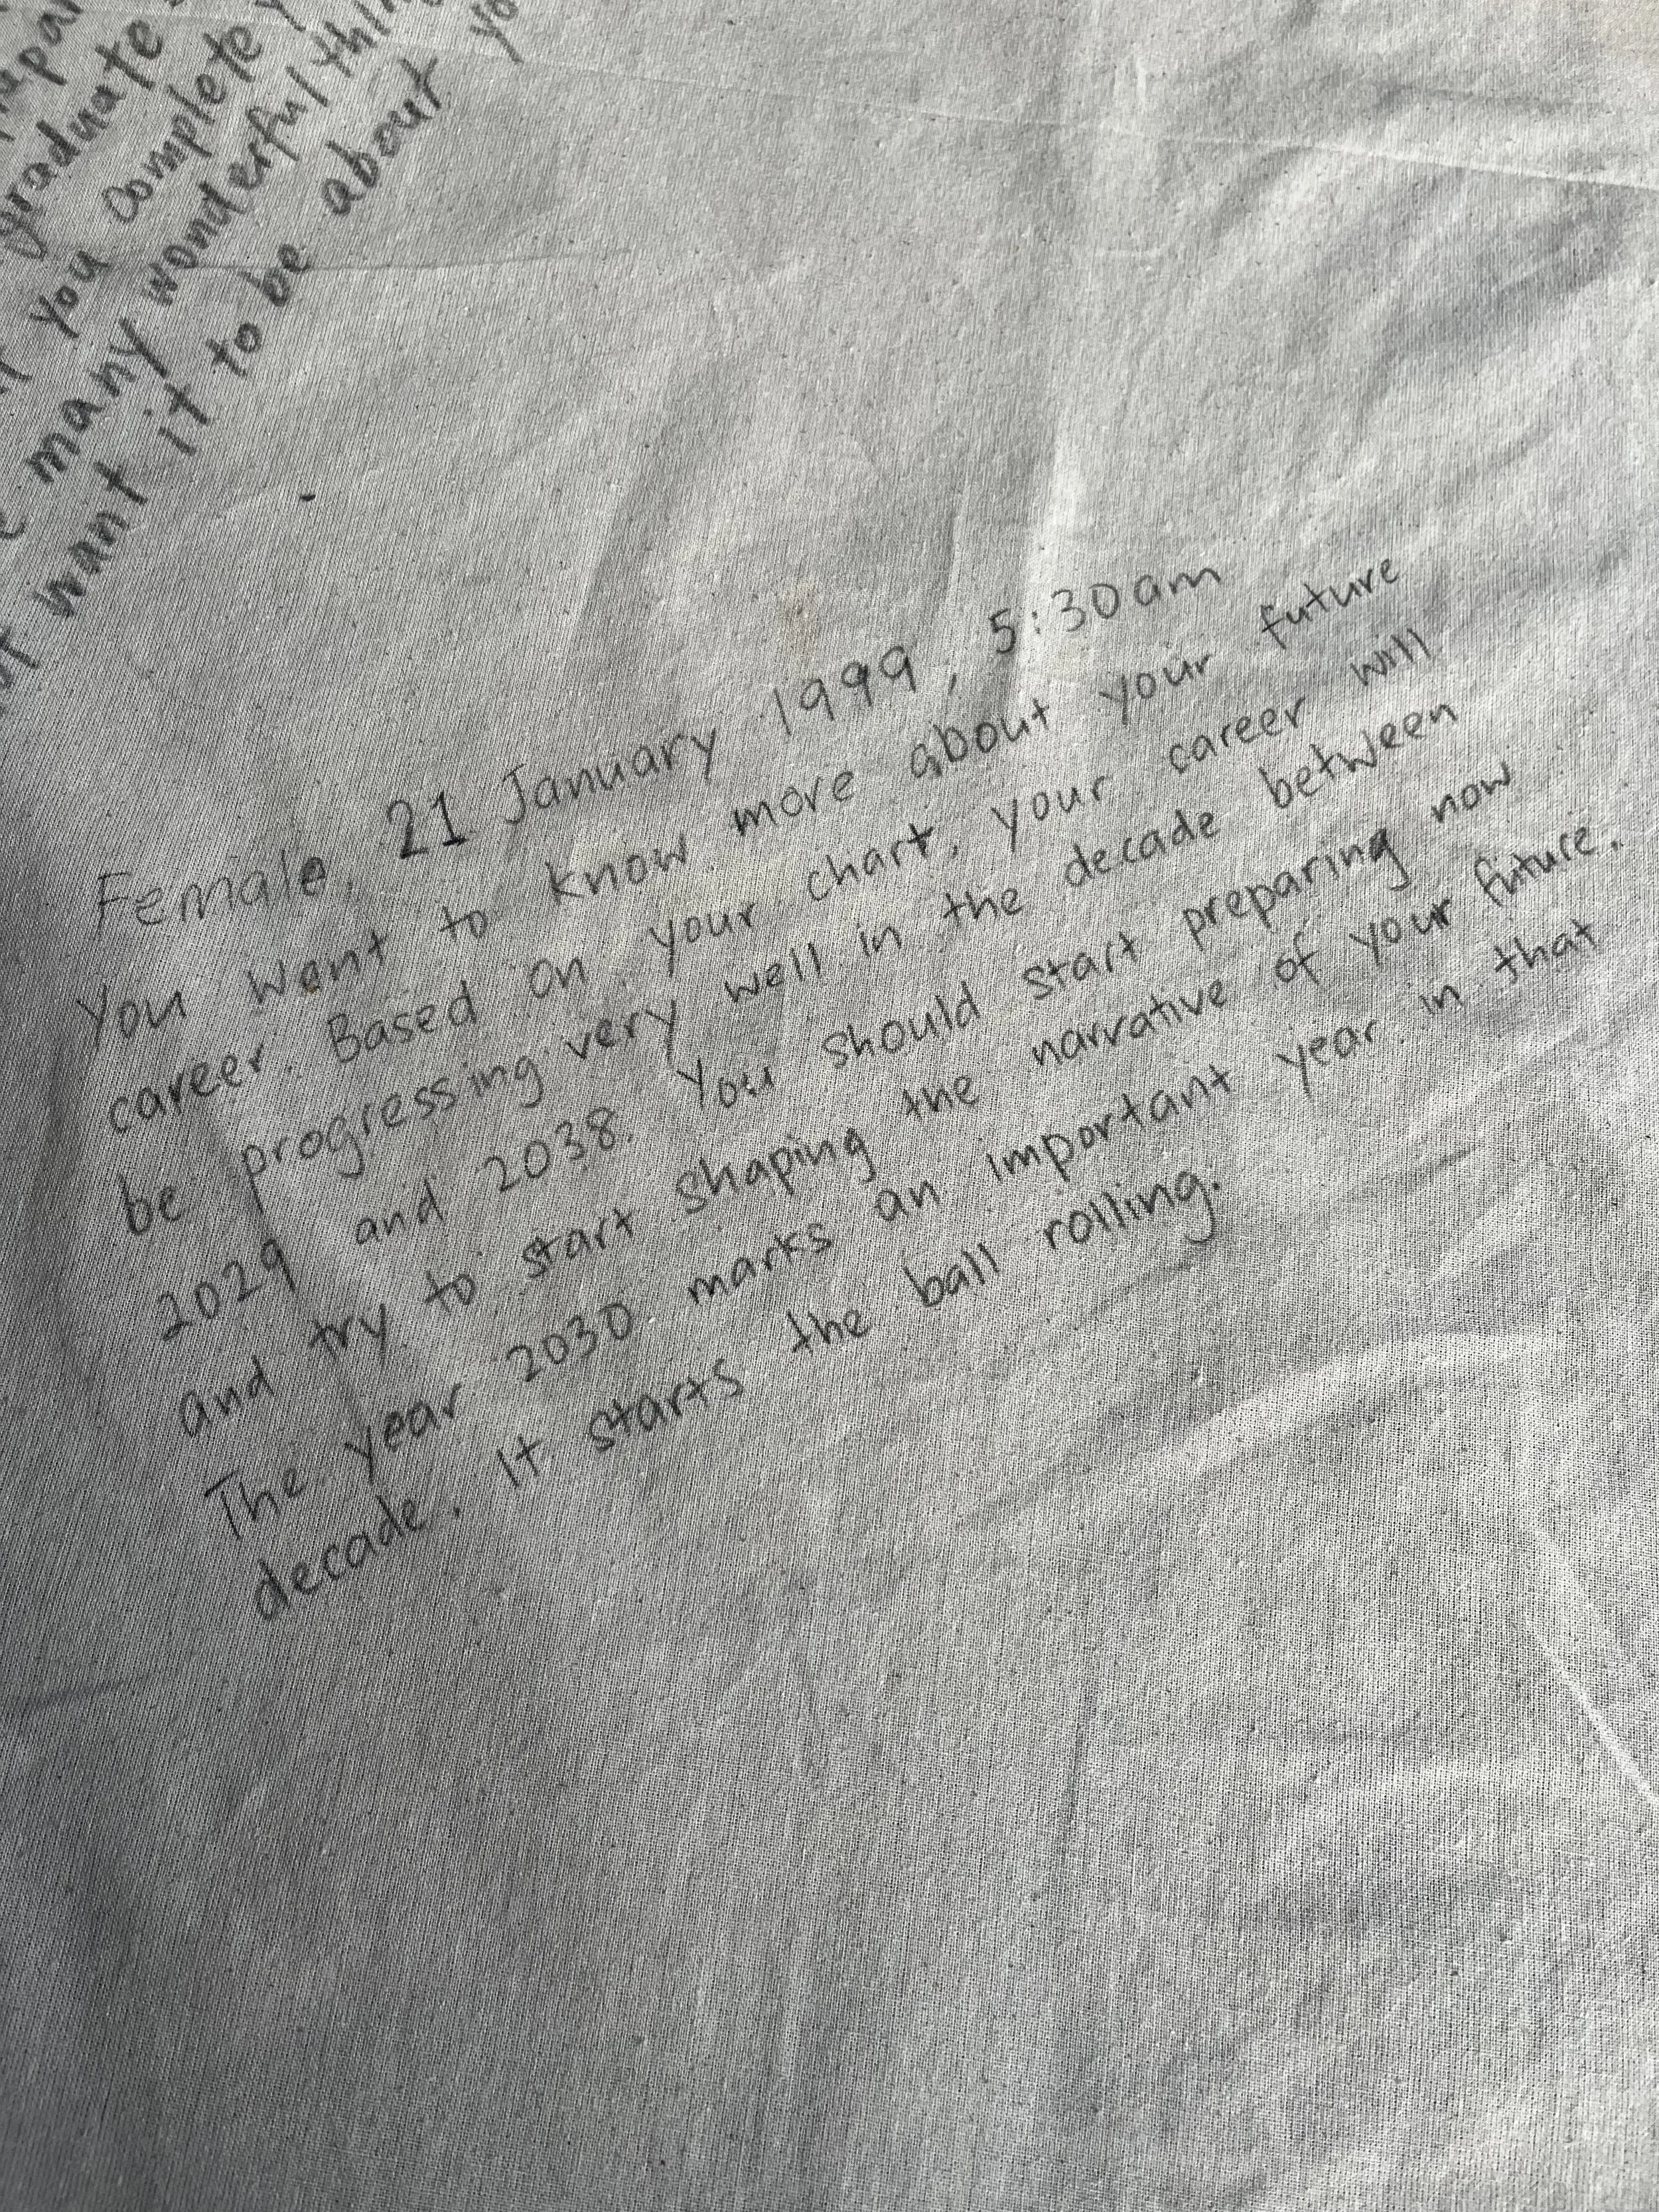 graduate
you complete
many wonderful
want it to be about
Female, 21 January 1999, 5:30am
You want to know more about your future
career. Based on your chart, your career will
be progressing very well in the decade between
2029 and 2038. You should start preparing now
and try to start shaping the narrative of your future.
The year 2030 marks an important year in that
decade. It starts the ball rolling.